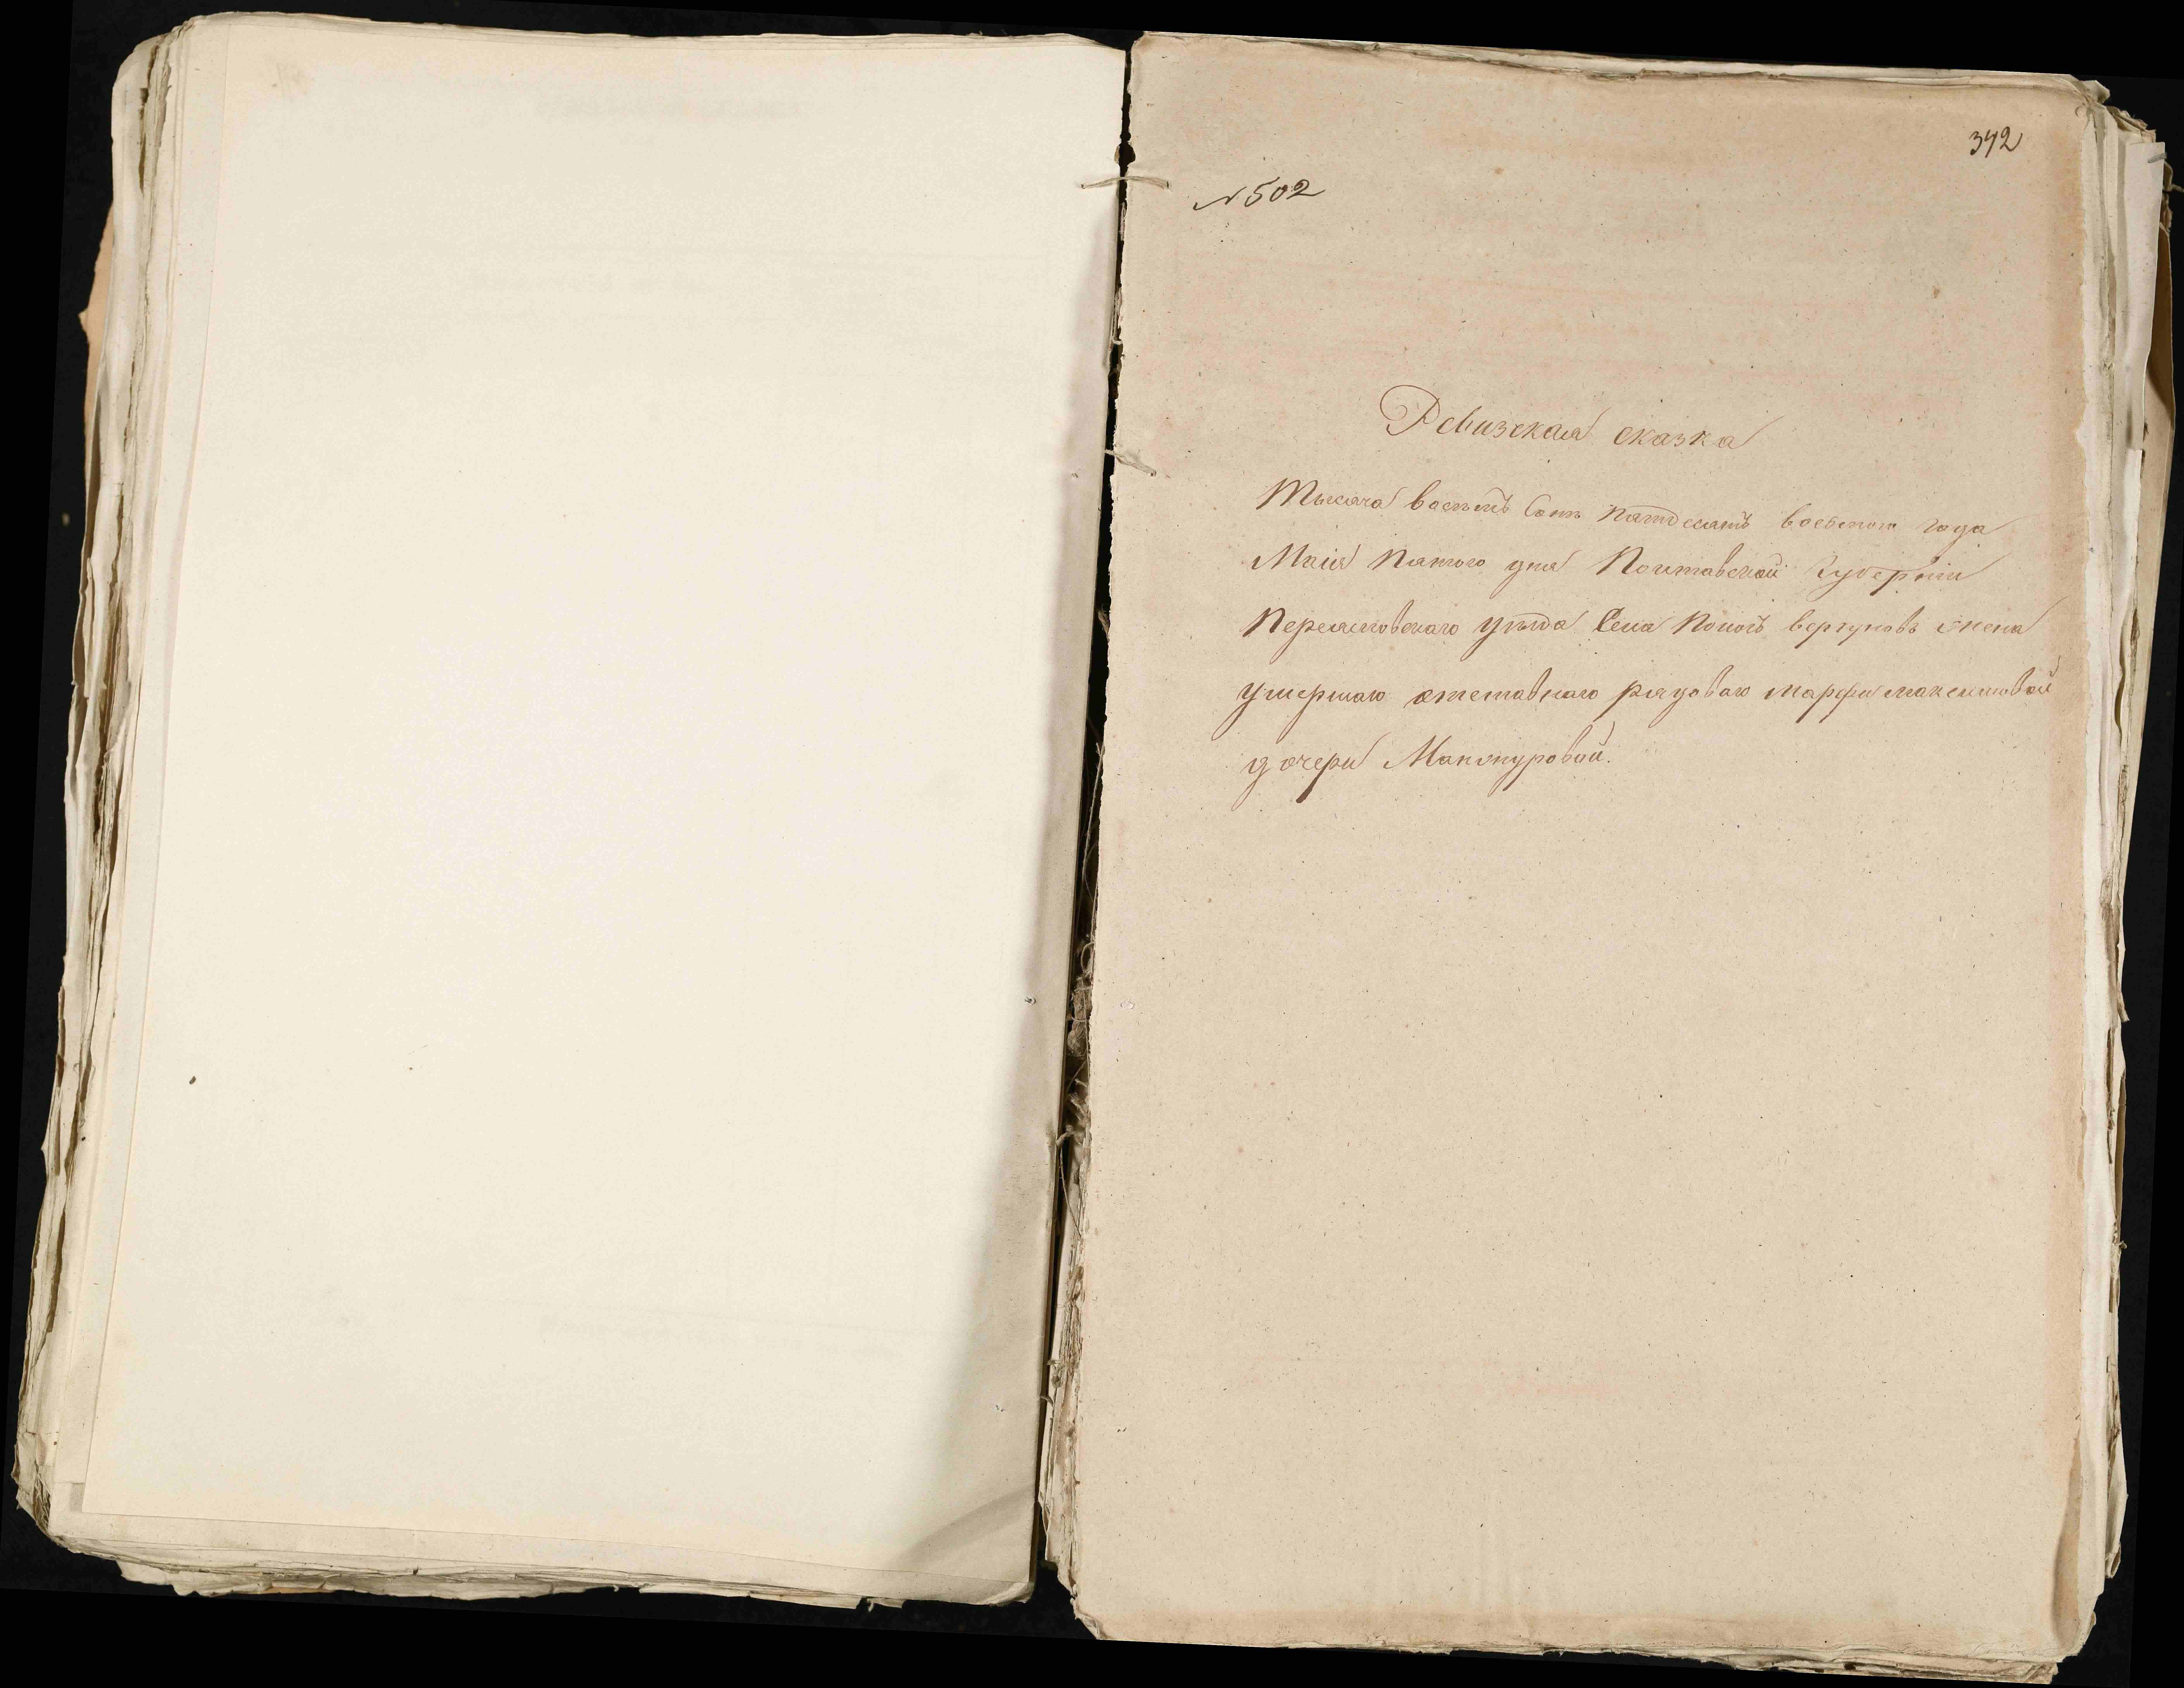 342
№ 502
Ревизская сказка
Тысяча восемъ Сотъ пятдесятъ восьмого года
Маія Пятого дня Полтавской Губерніи
Переяславскаго уѣзда Села Попогъ вергуновъ жена
умершаго отставнаго рядоваго марфы максимовой
дочери Макотуровой.